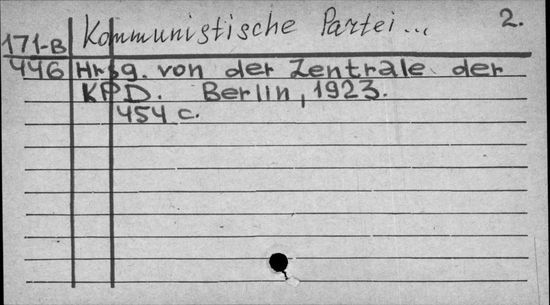 Kommunistische Partei... 2.
171-B
446 Hrsg. von der Zentrale der
KPD. Berlin, 1923.
454 c.